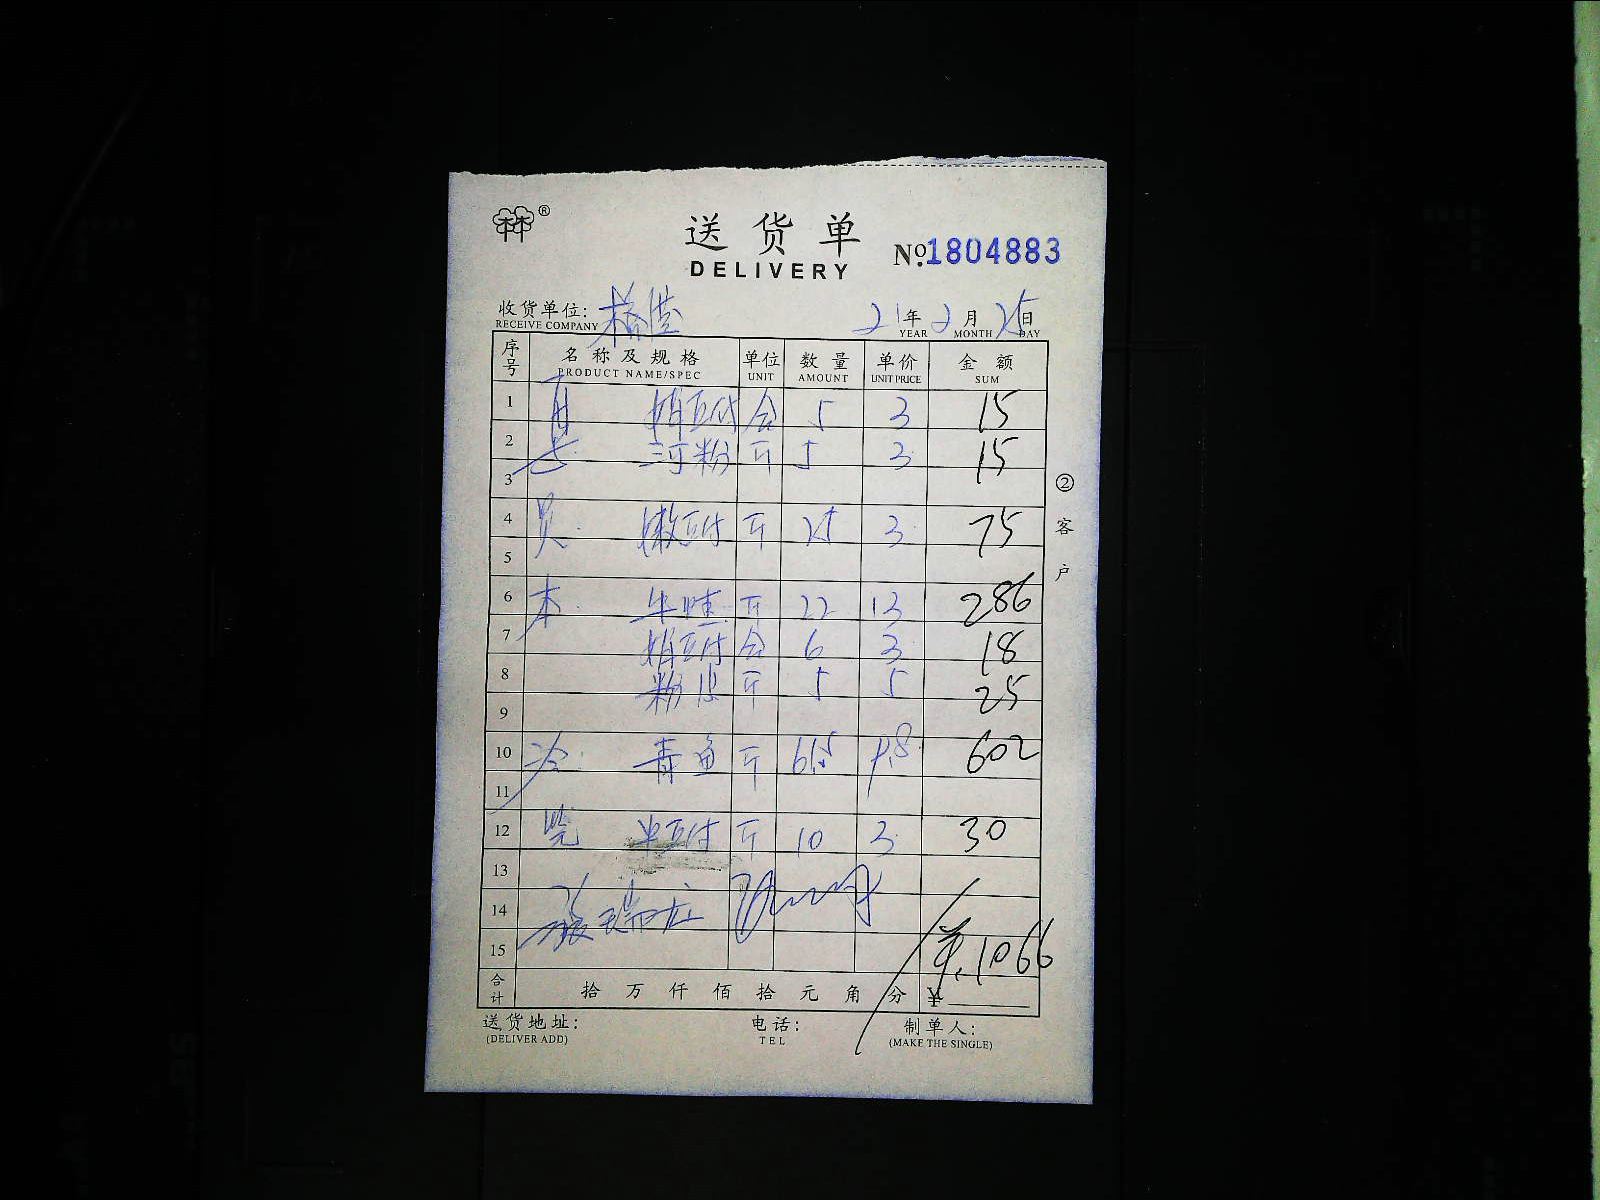 ®
送货单
DELIVERY
№ 1804883
收货单位:
RECEIVE COMPANY
21年2月25日
YEAR MONTH DAY
序号 名称及规格 单位 数量 单价 金额
PRODUCT NAME/SPEC UNIT AMOUNT UNIT PRICE SUM
1 豆付 合 5 3 15
2 河粉 斤 5 3 15
3
4 嫩豆付 斤 25 3 75
5
6 本 牛蛙 斤 22 13 286
7 豆付 合 6 3 18
8 粉皮 斤 5 5 25
9
10 冷 青鱼 斤 602
11
12 豆付 斤 10 3 30
13
14 张瑞
15 单.1066
合计 拾 万 仟 佰 拾 元 角 分 ¥
送货地址:
(DELIVER ADD)
电话:
TEL
制单人:
(MAKE THE SINGLE)
②客户